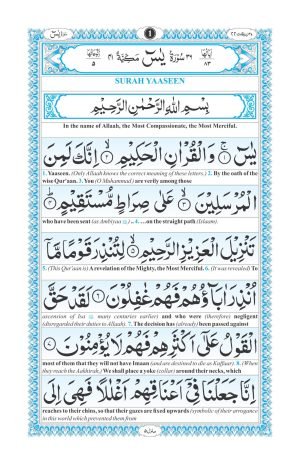 يٰسٓ
1
سُوْرَةُ يٰسٓ مَكِّيَّةٌ
٨٣
٥
SURAH YAASEEN
بِسْمِ اللّٰهِ الرَّحْمٰنِ الرَّحِيْمِ
In the name of Allaah, the Most Compassionate, the Most Merciful.
يٰسٓ ۝١ وَالْقُرْاٰنِ الْحَكِيْمِ ۝٢ اِنَّكَ لَمِنَ
1. Yaaseen. (Only Allaah knows the correct meaning of these letters.) 2. By the oath of the wise Qur'aan. 3. You (O Muhammad) are verily among those
الْمُرْسَلِيْنَ ۝٣ عَلٰى صِرَاطٍ مُّسْتَقِيْمٍ ۝٤
who have been sent (as Ambiyaa) .. 4. ... on the straight path (Islaam).
تَنْزِيْلَ الْعَزِيْزِ الرَّحِيْمِ ۝٥ لِتُنْذِرَ قَوْمًا مَّآ
5. (This Qur'aan is) A revelation of the Mighty, the Most Merciful. 6. (It was revealed) To
اُنْذِرَ اٰبَآؤُهُمْ فَهُمْ غٰفِلُوْنَ ۝٦ لَقَدْ حَقَّ
ascension of Isa many centuries earlier) and who were (therefore) negligent (disregarded their duties to Allaah). 7. The decision has (already) been passed against
الْقَوْلُ عَلٰٓى اَكْثَرِهِمْ فَهُمْ لَا يُؤْمِنُوْنَ ۝٧
most of them that they will not have Imaan (and are destined to die as Kuffaar). 8. (When they reach the Aakhirah,) We shall place a yoke (collar) around their necks, which
اِنَّا جَعَلْنَا فِيْٓ اَعْنَاقِهِمْ اَغْلٰلًا فَهِيَ اِلَى
reaches to their chins, so that their gazes are fixed upwards (symbolic of their arrogance in this world which prevented them from